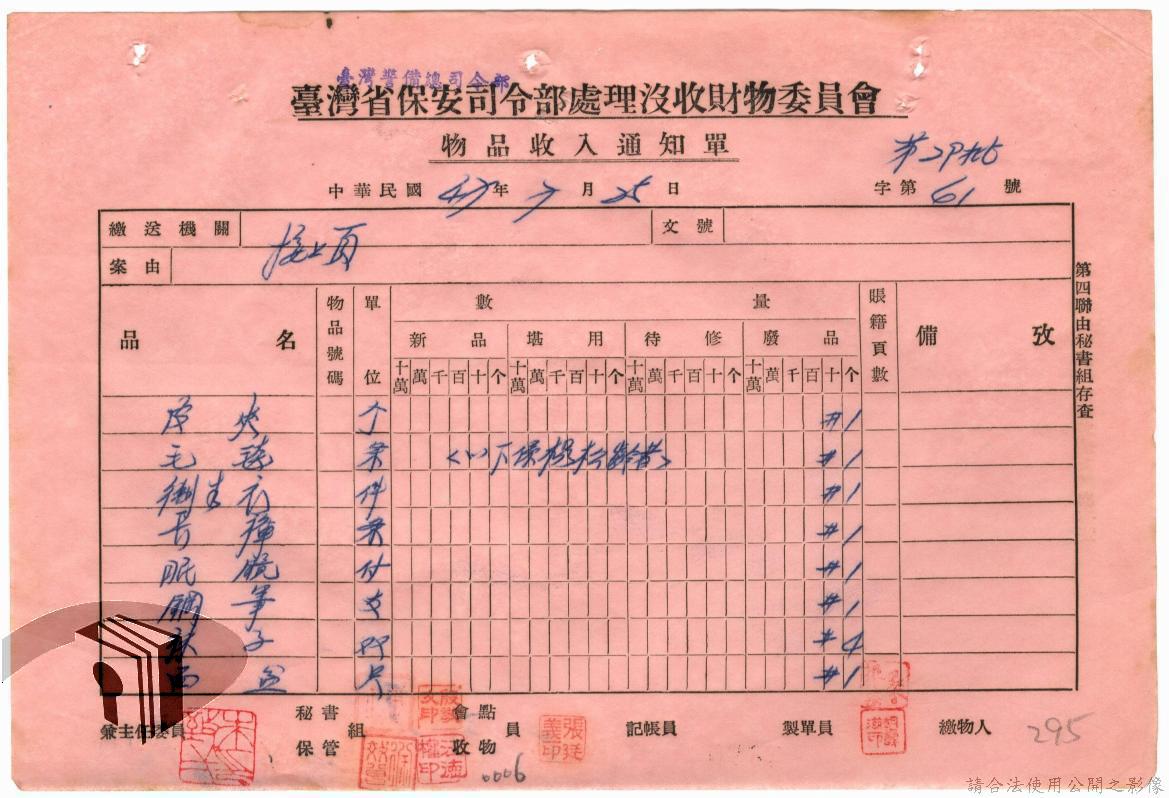 臺灣警備總司令部
臺灣省保安司令部處理沒收財物委員會
物品收入通知單
中華民國 47 年 7 月 25 日
字第 61 號
繳送機關 文號
接上頁
案由
品名 物品號碼 單位 數量 賬籍頁數 備攷
新品 堪用 待修 廢品
十萬 萬 千 百 十 个 十萬 萬 千 百 十 个 十萬 萬 千 百 十 个 十萬 萬 千 百 十 个
皮夾 个 #1
毛毯 条 #1
衛生衣 件 #1
長褲 条 #1
眠鏡 付 #1
鋼筆 支 #1
子 #4
面盆 #1
第四聯由秘書組存查
兼主任委員 秘書 保管 組 會點 收物 員 記帳員 製單員 繳物人
張廷義印
0006
295
請合法使用公開之影像